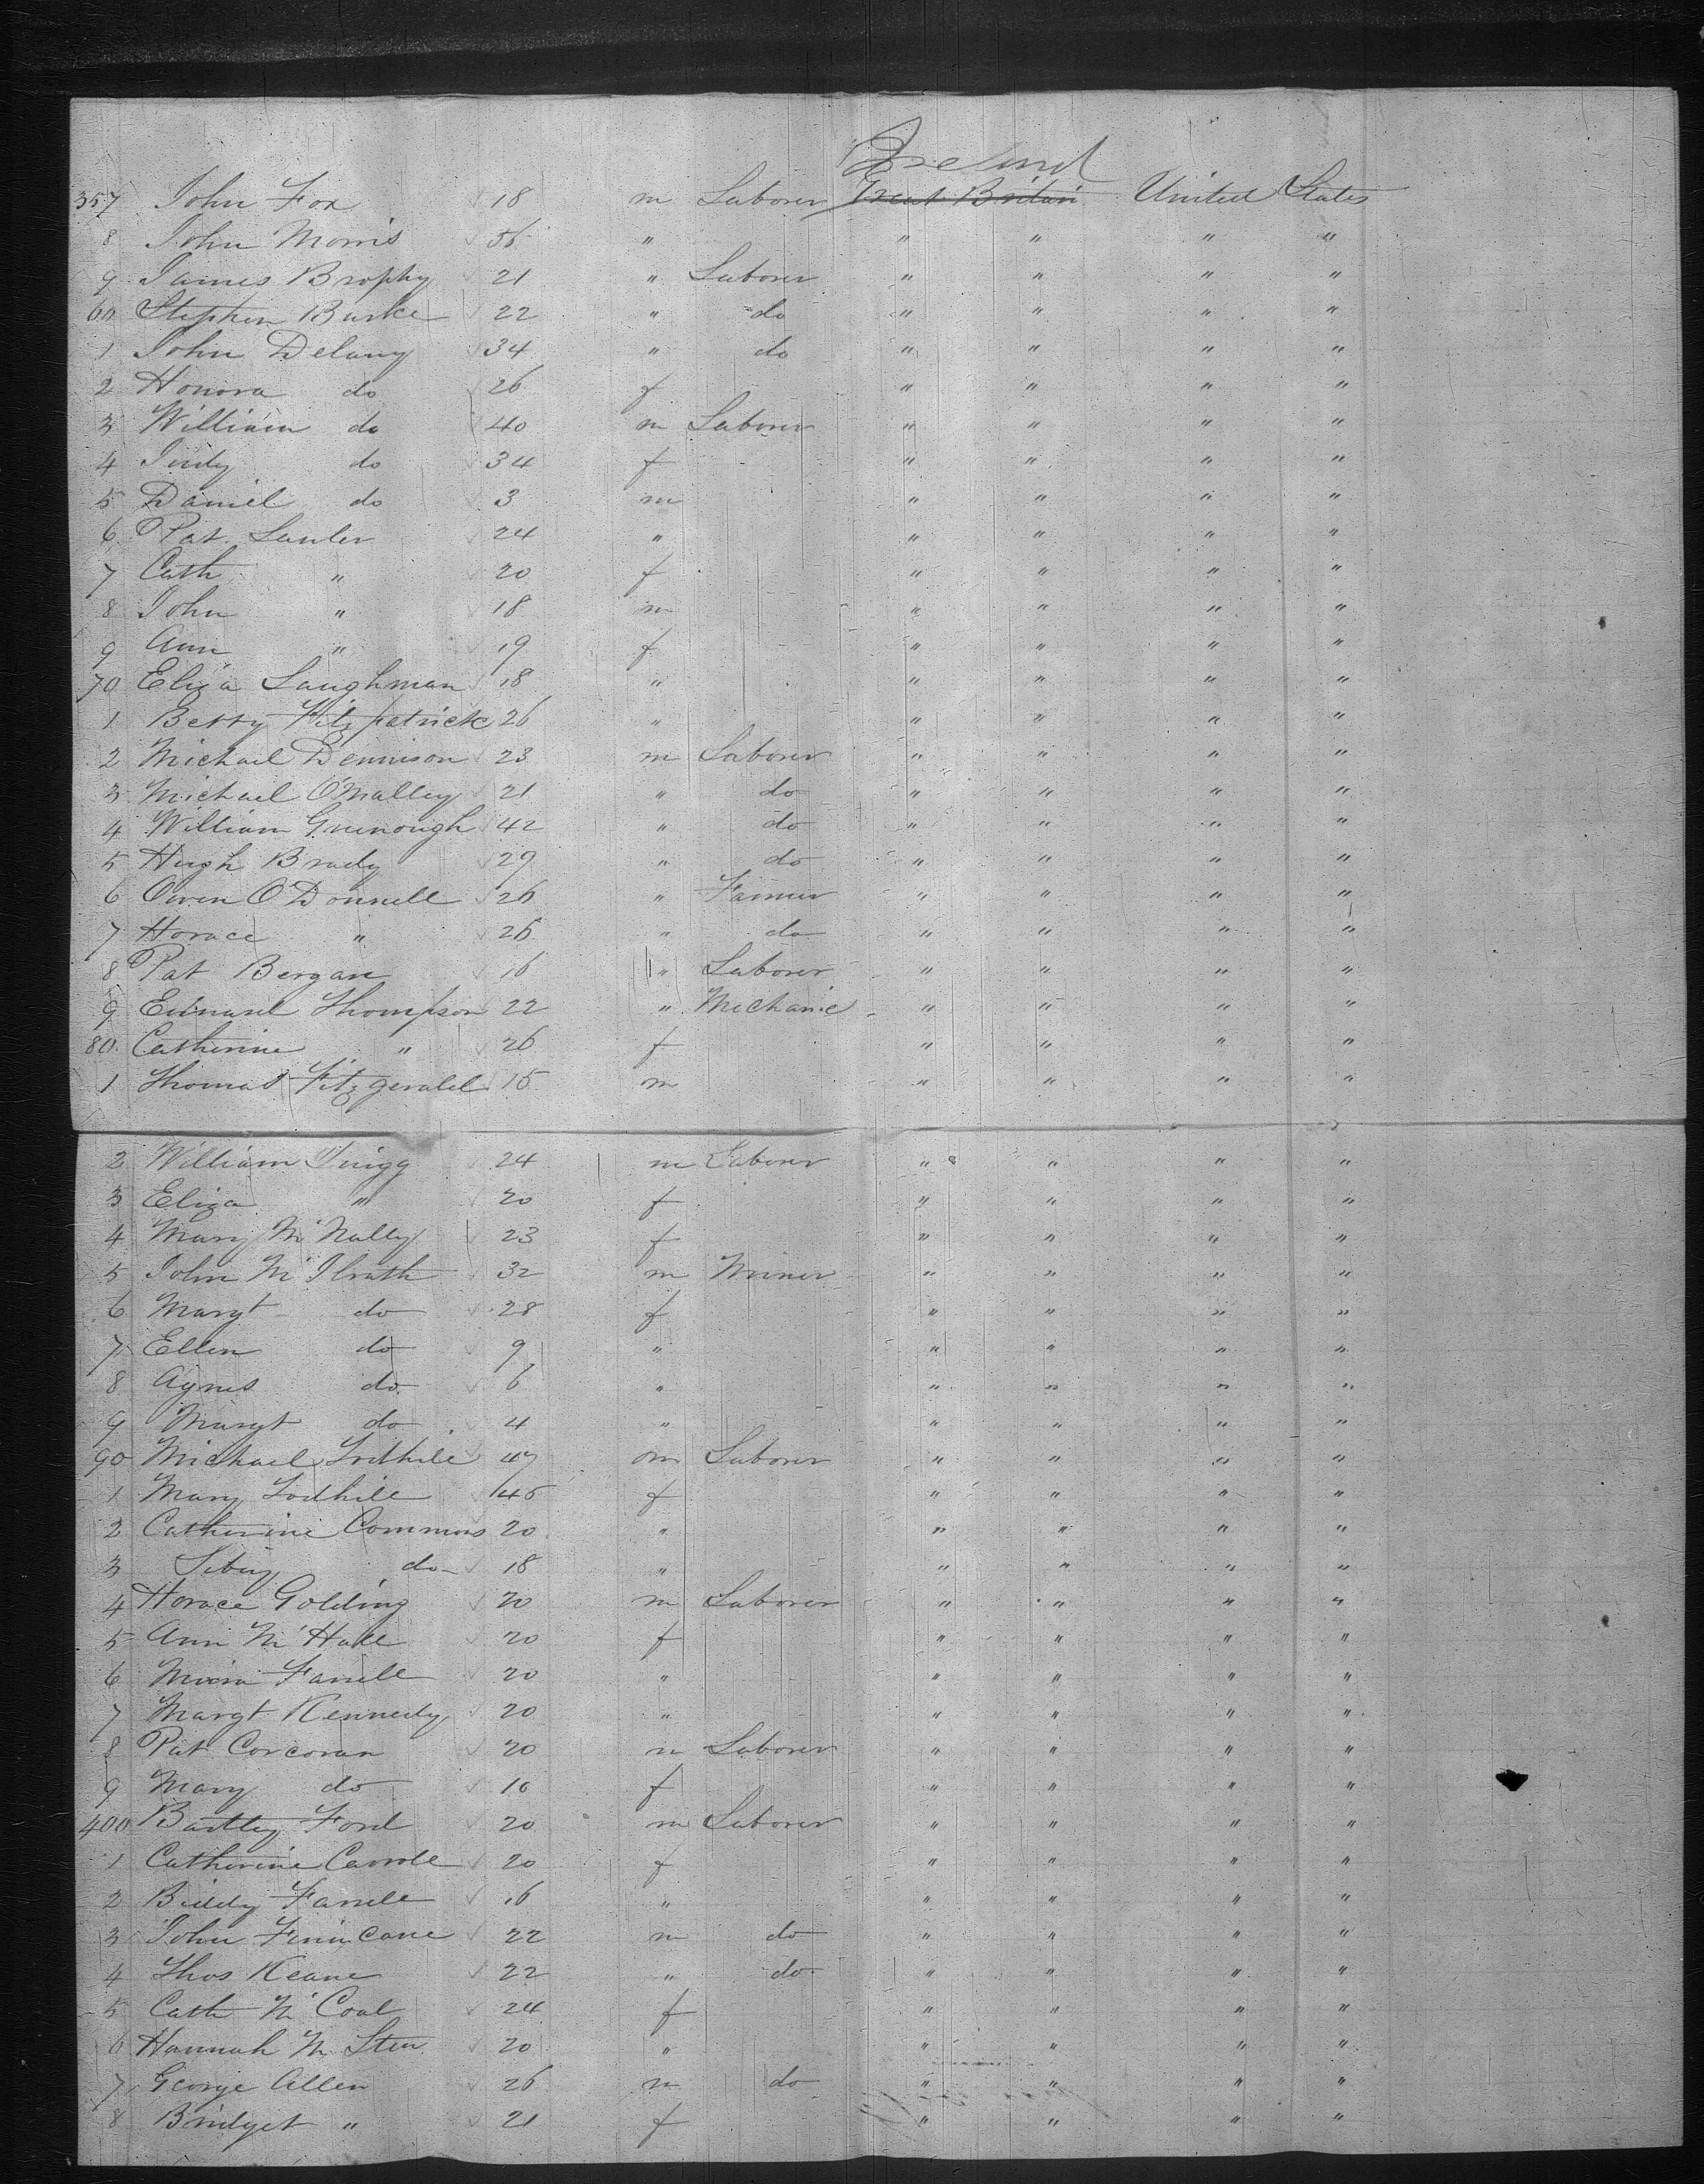 Ireland
357 John Fox 18 m Laborer Great Britain United States
8 John Morris 56 " " " " "
9 James Brophy 21 " Laborer " " " "
60 Stephen Burke 22 " do " " " "
1 John Delany 34 " do " " " "
2 Honora do 26 f " " " "
3 William do 40 m Laborer " " " "
4 Judy do 34 f " " " "
5 Daniel do 3 m " " " "
6 Pat. Lawler 24 " " " " "
7 Cath " 20 f " " " "
8 John " 18 m " " " "
9 Ann " 19 f " " " "
70 Eliza Laughman 18 " " " " "
1 Betty Fitzpatrick 26 " " " " "
2 Michael Dennison 23 m Laborer " " " "
3 Michael O'Malley 21 " do " " " "
4 William Greenough 42 " do " " " "
5 Hugh Brady 29 " do " " " "
6 Owen O'Donnell 26 " Farmer " " " "
7 Horace " 26 " do " " " "
8 Pat Bergan 16 " Laborer " " " "
9 Edward Thompson 22 " Mechanic " " " "
80 Catherine " 26 f " " " "
1 Thomas Fitzgerald 15 m " " " "
2 William 24 m Laborer " " " "
3 Eliza " 20 f " " " "
4 Mary McNally 23 f " " " "
5 John McIlrath 32 m Miner " " " "
6 Margt do 28 f " " " "
7 Ellen do 9 " " " " "
8 Agnes do 6 " " " " "
9 Margt do 4 " " " " "
90 Michael 47 m Laborer " " " "
1 Mary 45 f " " " "
2 Catherine Commons 20 " " " " "
3 do 18 " " " " "
4 Horace Golding 20 m Laborer " " " "
5 Ann McHale 20 f " " " "
6 Farrell 20 " " " " "
7 Margt Kennedy 20 " " " " "
8 Pat Corcoran 20 m Laborer " " " "
9 Mary do 16 f " " " "
400 Bartley Ford 20 m Laborer " " " "
1 Catherine Carroll 20 f " " " "
2 Biddy Farrell 16 " " " " "
3 John Finucane 22 m do " " " "
4 Thos Keane 22 " do " " " "
5 Cath McCoal 24 f " " " "
6 Hannah 20 " " " " "
7 George Allen 26 m do " " " "
8 Bridget " 21 f " " " "